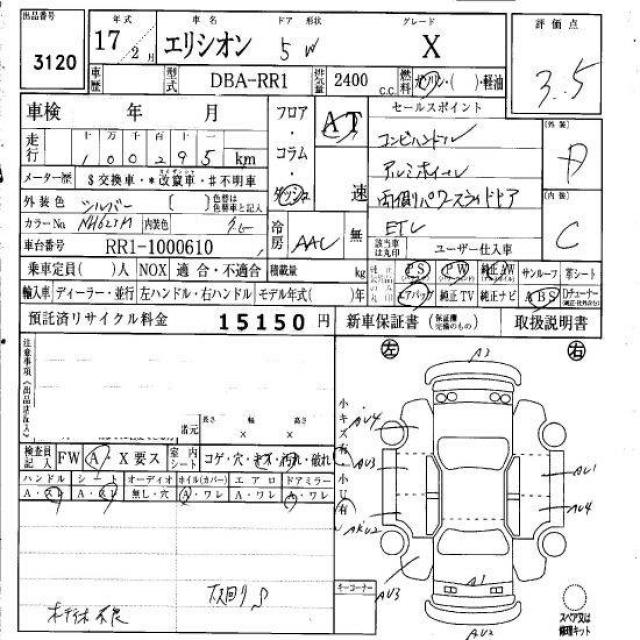 出品番号 年式 車名 ドア 形状 グレード 評価点
3120 17 2月 エリシオン 5 W X 3.5
車歴 型式 DBA-RR1 排気量 2400 c.c. 燃料 ガソリン・( )・軽油
車検 年 月 フロア・コラム・ダッシュ AT 速
セールスポイント
走行 十 万 千 百 十 一
1 0 0 2 9 5 km
コンビハンドル
アルミホイール
両側パワースライドドア
ETC
外装 D
内装 C
メーター歴 $交換車・*改竄車・#不明車
外装色 シルバー [ ] 色替は色替車と記入
カラーNo. NH623M 内装色 グレー
冷房 AAC 無
該当車は丸印 ユーザー仕入車
車台番号 RR1-1000610
乗車定員( )人 NOX 適合・不適合 積載量 kg
PS PW 純正AW サンルーフ 革シート
輸入車 ディーラー・並行 左ハンドル・右ハンドル モデル年式( )年
エアバッグ 純正TV 純正ナビ ABS Dチューナー
預託済リサイクル料金 15150円 新車保証書 (保証継完備のもの) 取扱説明書
注意事項(出品店記入) 諸元 長さ 幅 高さ
× ×
検査員記入 FW A・X要ス 室内シート コゲ・穴・キズ・汚れ・破れ
ハンドル シート オーディオ ホイル(カバー) エアロ ドアミラー
A・スレ A・スレ 無し・穴 A・ワレ A・ワレ A・ワレ
左 右
小キズ有・小U有
A2
AU4
AU3
AU1
AU4
AU3
A1
AU2
キーコーナー
スペア又は修理キット